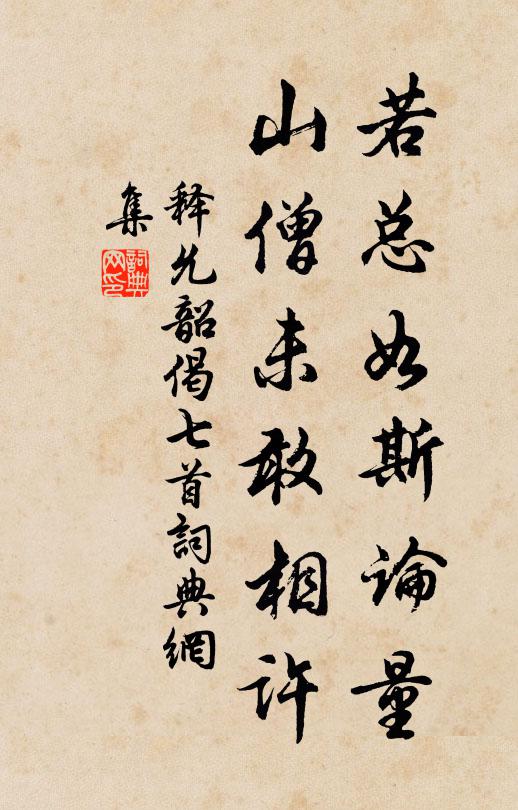 若总如斯论量
山僧未敢相许
释允韶偈七首詞典網
集
詞典
网印